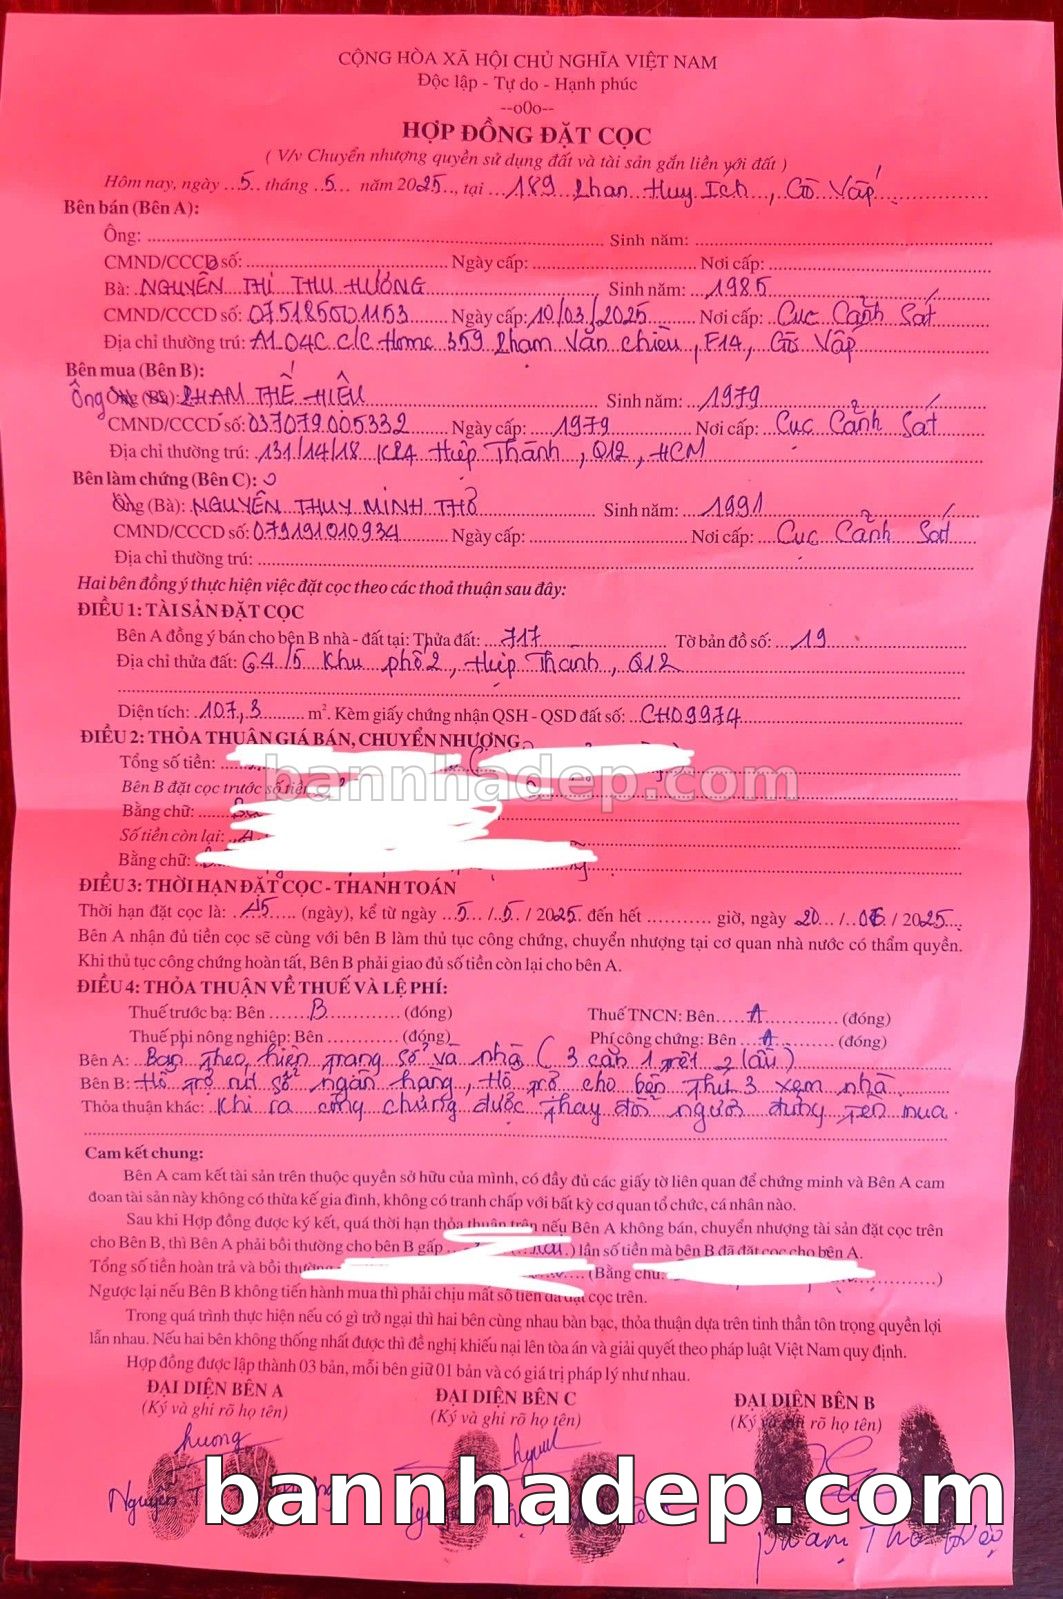 CỘNG HÒA XÃ HỘI CHỦ NGHĨA VIỆT NAM
Độc lập - Tự do - Hạnh phúc
--o0o--
HỢP ĐỒNG ĐẶT CỌC
( V/v Chuyển nhượng quyền sử dụng đất và tài sản gắn liền với đất )
Hôm nay, ngày ...5... tháng ..5... năm 2025.., tại ...189 Phan Huy Ích, Gò Vấp
Bên bán (Bên A):
Ông: ........ Sinh năm: ........
CMND/CCCD số: ........ Ngày cấp: ........ Nơi cấp: ........
Bà: NGUYỄN THỊ THU HƯƠNG Sinh năm: 1985
CMND/CCCD số: 075185001153 Ngày cấp: 10/03/2025 Nơi cấp: Cục Cảnh Sát
Địa chỉ thường trú: A1.04C C/C Home 359 Phạm Văn Chiêu, F14, Gò Vấp
Bên mua (Bên B):
Ông Ông (Bà): PHẠM THẾ HIỆU Sinh năm: 1979
CMND/CCCD số: 037079005332 Ngày cấp: 1979 Nơi cấp: Cục Cảnh Sát
Địa chỉ thường trú: 131/14/18 KP4 Hiệp Thành, Q12, HCM
Bên làm chứng (Bên C):
Ông (Bà): NGUYỄN THUY MINH THƠ Sinh năm: 1991
CMND/CCCD số: 079191010934 Ngày cấp: ........ Nơi cấp: Cục Cảnh Sát
Địa chỉ thường trú: ........
Hai bên đồng ý thực hiện việc đặt cọc theo các thoả thuận sau đây:
ĐIỀU 1: TÀI SẢN ĐẶT CỌC
Bên A đồng ý bán cho bên B nhà - đất tại: Thửa đất: 717 Tờ bản đồ số: 19
Địa chỉ thửa đất: G4/5 Khu phố 2, Hiệp Thành, Q12
Diện tích: 107,3 m². Kèm giấy chứng nhận QSH - QSD đất số: CH09974
ĐIỀU 2: THỎA THUẬN GIÁ BÁN, CHUYỂN NHƯỢNG
Tổng số tiền:
bannhadep.com
Bên B đặt cọc trước số tiền
Bằng chữ:
Số tiền còn lại:
Bằng chữ:
ĐIỀU 3: THỜI HẠN ĐẶT CỌC - THANH TOÁN
Thời hạn đặt cọc là: 45 (ngày), kể từ ngày 5 / 5 / 2025 đến hết .......... giờ, ngày 20 / 06 / 2025
Bên A nhận đủ tiền cọc sẽ cùng với bên B làm thủ tục công chứng, chuyển nhượng tại cơ quan nhà nước có thẩm quyền.
Khi thủ tục công chứng hoàn tất, Bên B phải giao đủ số tiền còn lại cho bên A.
ĐIỀU 4: THỎA THUẬN VỀ THUẾ VÀ LỆ PHÍ:
Thuế trước bạ: Bên B (đóng) Thuế TNCN: Bên A (đóng)
Thuế phi nông nghiệp: Bên ........ (đóng) Phí công chứng: Bên A (đóng)
Bên A: Bán theo hiện trạng sổ và nhà ( 3 căn 1 trệt 2 lầu )
Bên B: Hỗ trợ rút sổ ngân hàng, Hỗ trợ cho bên Thứ 3 xem nhà
Thỏa thuận khác: Khi ra công chứng được thay đổi người đứng tên mua.
Cam kết chung:
Bên A cam kết tài sản trên thuộc quyền sở hữu của mình, có đầy đủ các giấy tờ liên quan để chứng minh và Bên A cam
đoan tài sản này không có thừa kế gia đình, không có tranh chấp với bất kỳ cơ quan tổ chức, cá nhân nào.
Sau khi Hợp đồng được ký kết, quá thời hạn thỏa thuận trên nếu Bên A không bán, chuyển nhượng tài sản đặt cọc trên
cho Bên B, thì Bên A phải bồi thường cho bên B gấp ........ ) lần số tiền mà bên B đã đặt cọc cho bên A.
Tổng số tiền hoàn trả và bồi thường ........ (Bằng chữ: ........ )
Ngược lại nếu Bên B không tiến hành mua thì phải chịu mất số tiền đã đặt cọc trên.
Trong quá trình thực hiện nếu có gì trở ngại thì hai bên cùng nhau bàn bạc, thỏa thuận dựa trên tinh thần tôn trọng quyền lợi
lẫn nhau. Nếu hai bên không thống nhất được thì đề nghị khiếu nại lên tòa án và giải quyết theo pháp luật Việt Nam quy định.
Hợp đồng được lập thành 03 bản, mỗi bên giữ 01 bản và có giá trị pháp lý như nhau.
ĐẠI DIỆN BÊN A ĐẠI DIỆN BÊN C ĐẠI DIỆN BÊN B
(Ký và ghi rõ họ tên) (Ký và ghi rõ họ tên) (Ký và ghi rõ họ tên)
Hương
Nguyễn
bannhadep.com
Phạm Thế Hiệu